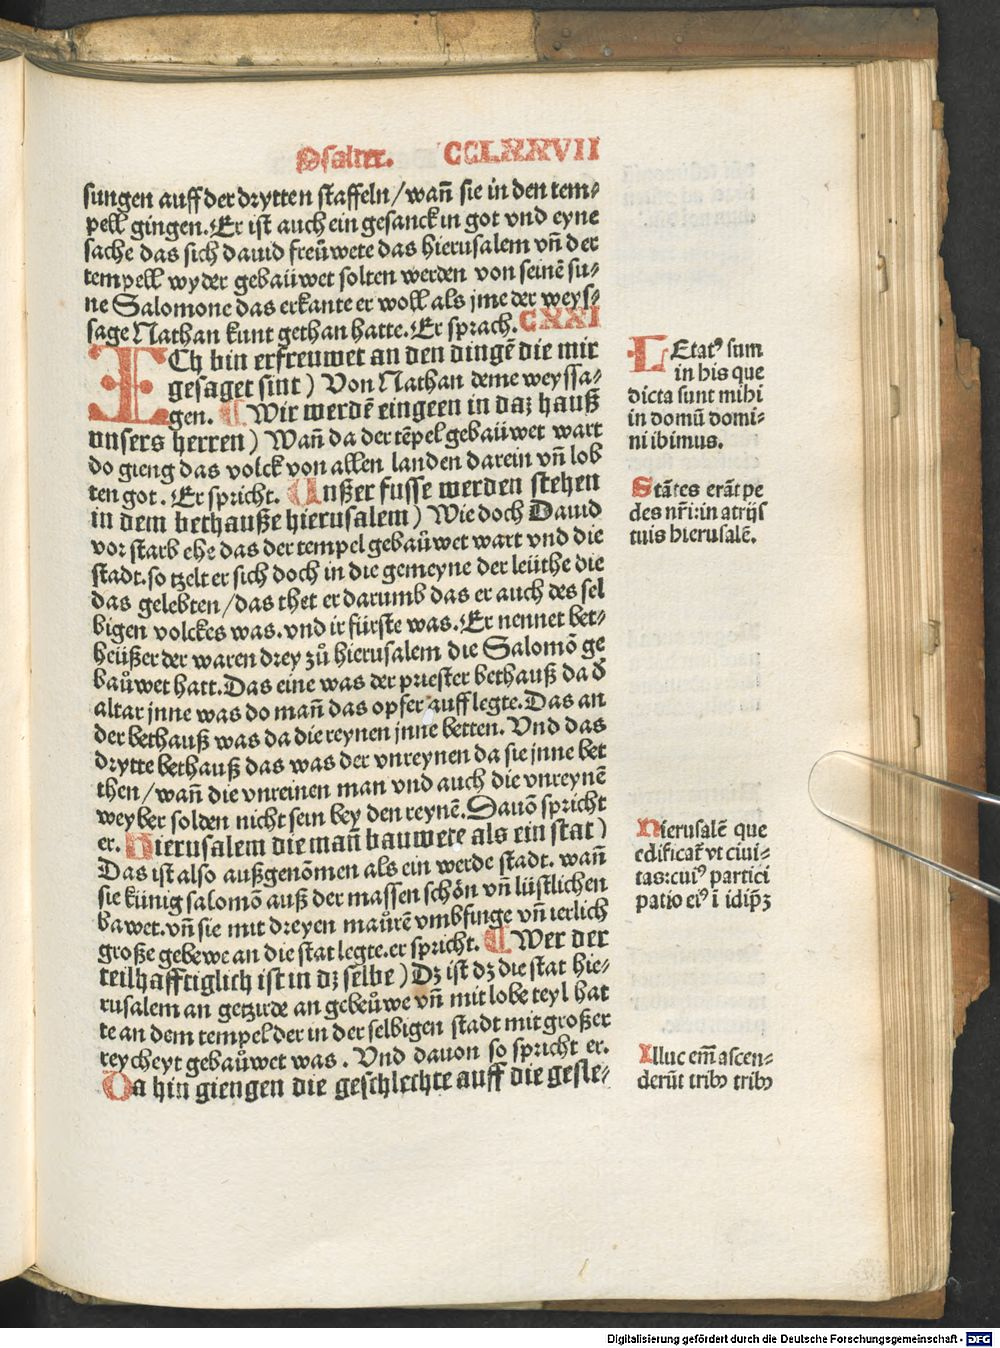 Psalter. CCLXXVII
sungen auff der drytten staffeln/wañ sie in den tem⸗
pell gingen. Er ist auch ein gesanck in got vnd eyne
sache das sich dauid freüwete das hierusalem vñ der
tempell wyder gebaüwet solten werden von seinē su⸗
ne Salomone das erkante er woll als jme der weys⸗
sage Nathan kunt gethan hatte. Er sprach. CXXI
ICh bin erfreuwet an den dingē die mir
gesaget sint) Von Nathan deme weyssa⸗
gen. Wir werdē eingeen in daz hauß
vnsers herren) Wañ da der tēpel gebaüwet wart
do gieng das volck von allen landen darein vñ lob
ten got. Er spricht. Unßer fusse werden stehen
in dem bethauße hierusalem) Wie doch Dauid
vor starb ehe das der tempel gebaůwet wart vnd die
stadt. so tzelt er sich doch in die gemeyne der leüthe die
das gelebten/das thet er darumb das er auch des sel
bigen volckes was. vnd ir fürste was. Er nennet bet⸗
heüßer der waren drey zů hierusalem die Salomō ge
baůwet hatt. Das eine was der priester bethauß da d̕
altar jnne was do mañ das opfer auff legte. Das an
der bethauß was da die reynen jnne betten. Vnd das
drytte bethauß das was der vnreynen da sie jnne bet
then/wañ die vnreinen man vnd auch die vnreynē
weyber solden nicht sein bey den reynē. Dauō spricht
er. Hierusalem die mañ bauwete als ein stat)
Das ist also außgenōmen als ein werde stadt. wañ
sie künig salomō auß der massen schön vñ lüstlichen
bawet. vñ sie mit dreyen maůrē vmbfinge vñ ierlich
große gebewe an die stat legte. er spricht. Wer der
teilhafftiglich ist in dz selbe) Dz ist dz die stat hie⸗
rusalem an getzirde an gebeůwe vñ mit lobe teyl hat
te an dem tempel der in der selbigen stadt mit großer
reycheyt gebaůwet was. Vnd dauon so spricht er.
Da hin giengen die geschlechte auff die gesle⸗
LEtatꝰ sum
in his que
dicta sunt mihi
in domū domi⸗
ni ibimus.
Stātes erāt pe
des nr̄i: in atrijs
tuis hierusalē.
Hierusalē que
edificat̄ vt ciui⸗
tas: cuiꝰ partici
patio eiꝰ ī idip̄ꝫ
Illuc em̄ ascen⸗
derūt tribꝰ tribꝰ
Digitalisierung gefördert durch die Deutsche Forschungsgemeinschaft - DFG